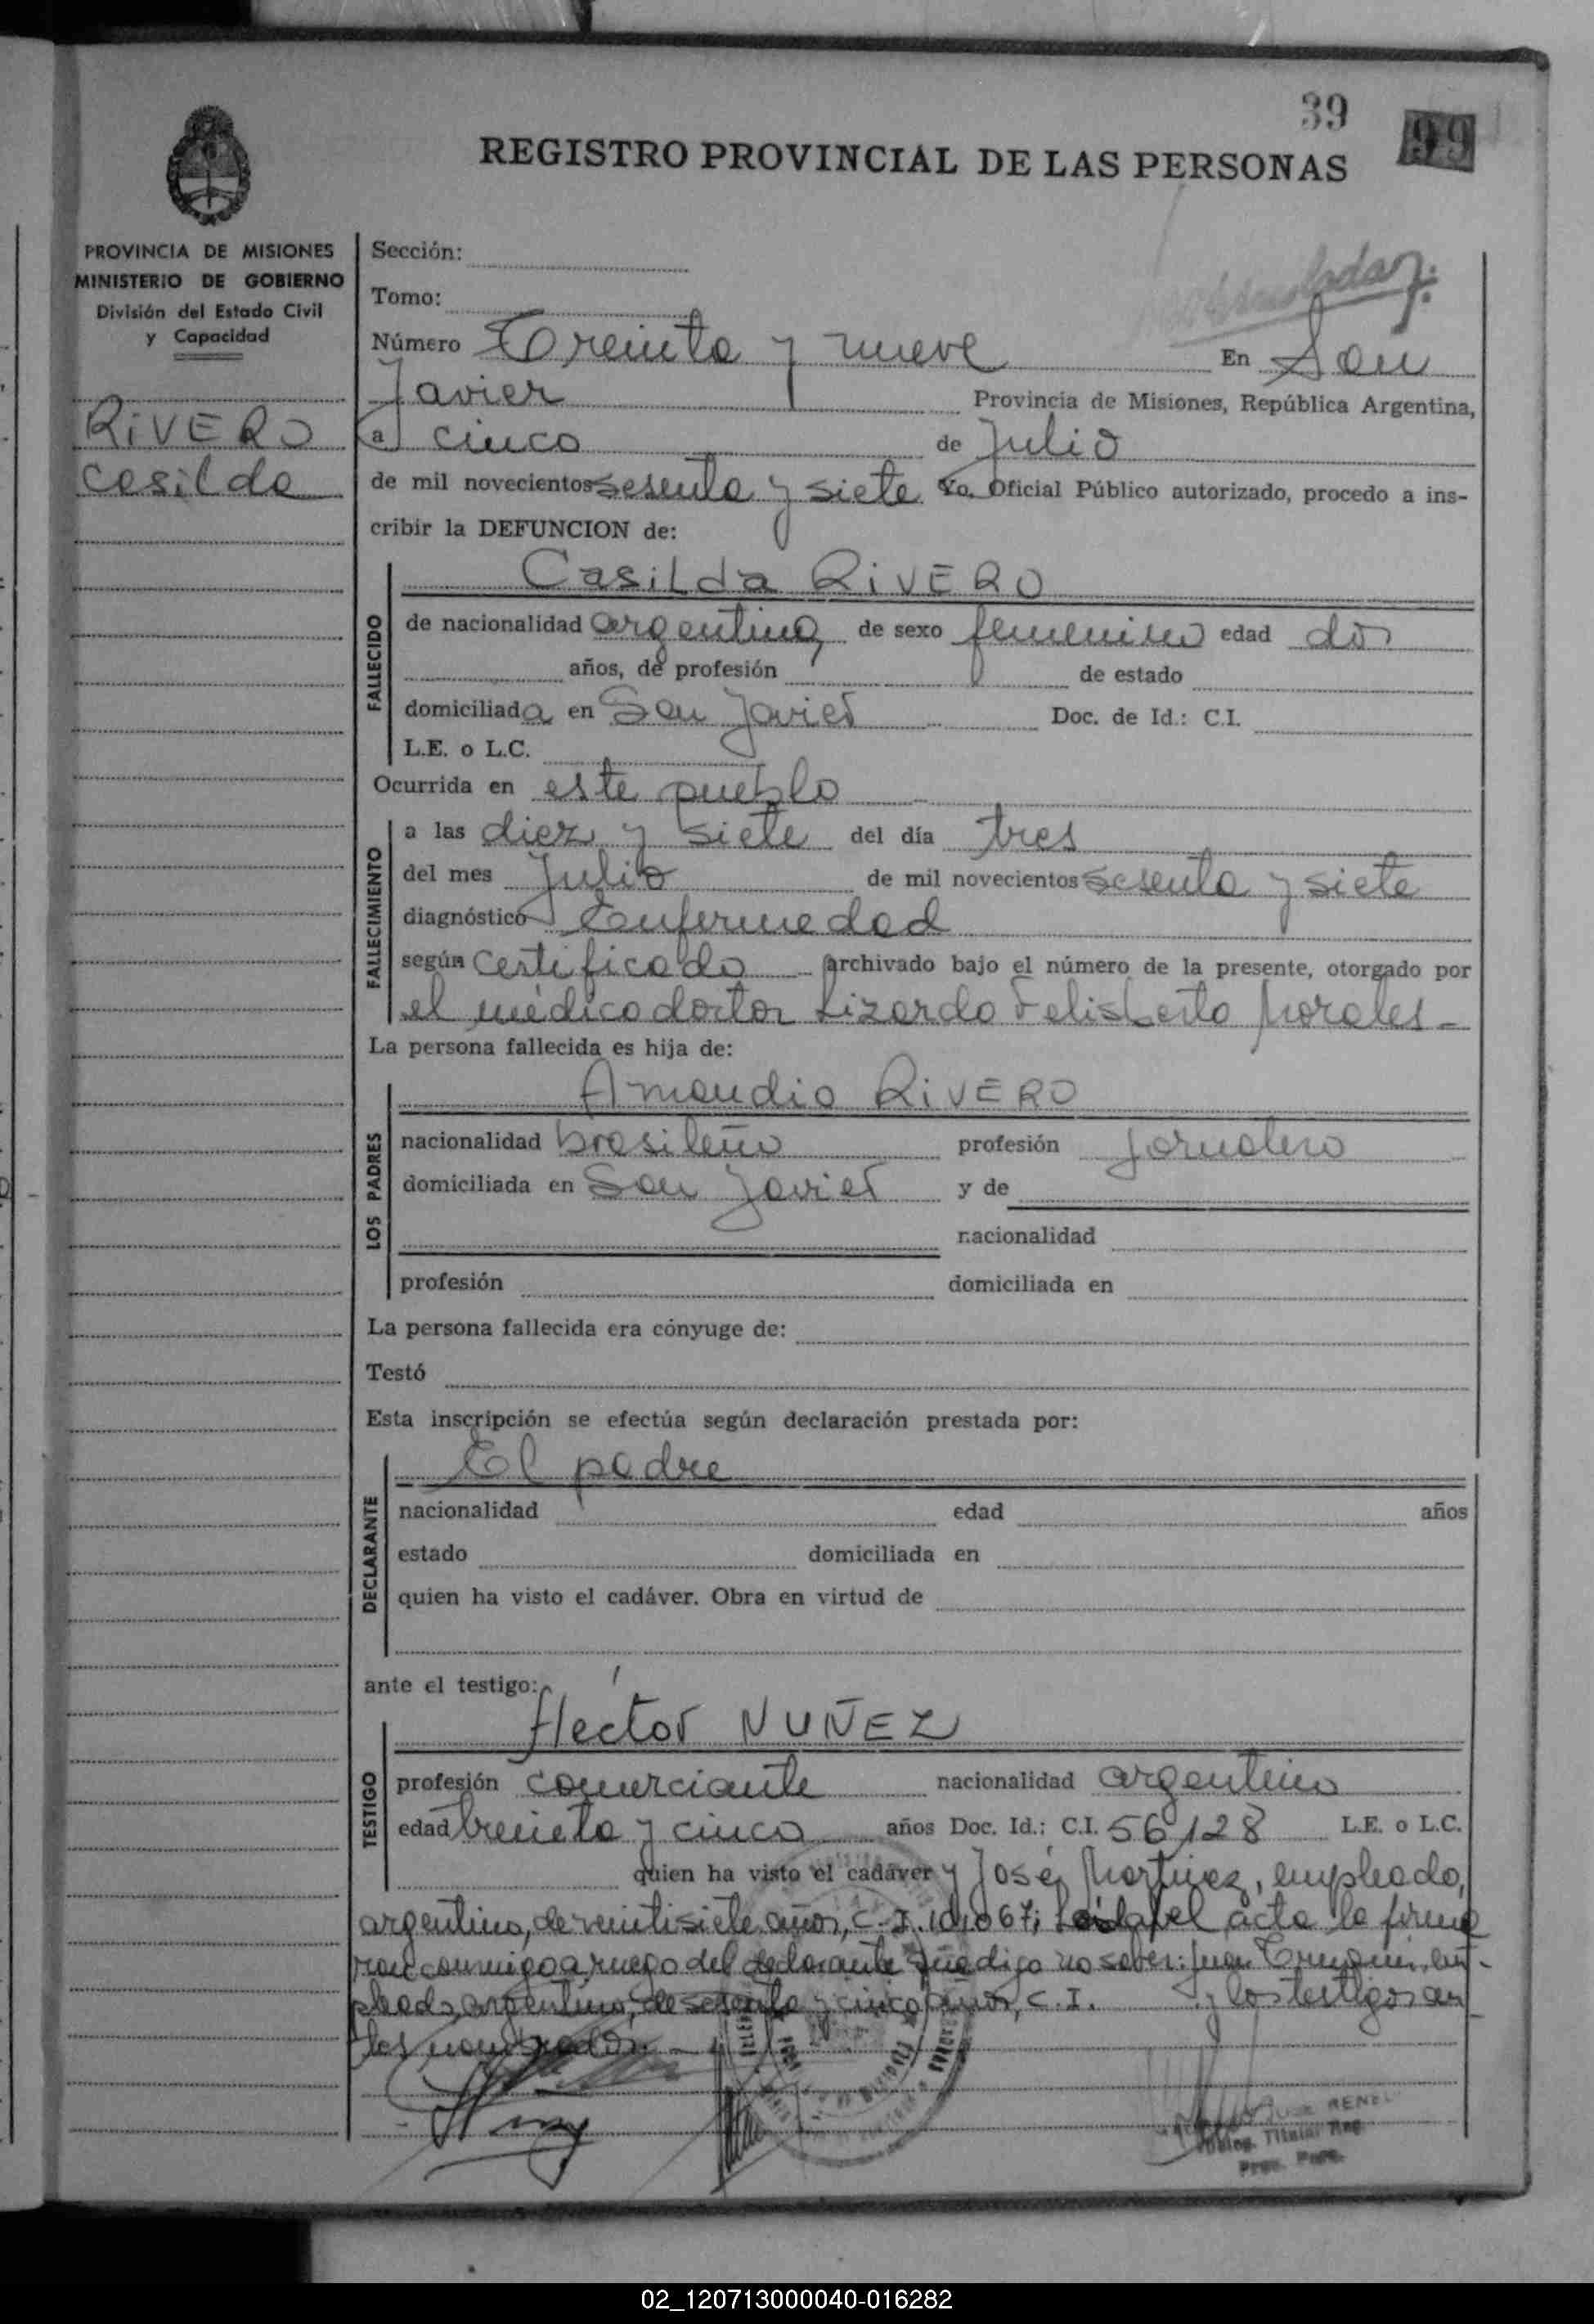 39
99
REGISTRO PROVINCIAL DE LAS PERSONAS
PROVINCIA DE MISIONES
MINISTERIO DE GOBIERNO
División del Estado Civil
y Capacidad
RIVERO
Casilda
Sección:
Tomo:
Número Treinta y nueve En San
Javier Provincia de Misiones, República Argentina,
a cinco de Julio
de mil novecientos sesenta y siete Yo, Oficial Público autorizado, procedo a ins-
cribir la DEFUNCION de:
Casilda RIVERO
FALLECIDO
de nacionalidad argentina, de sexo femenino edad dos
años, de profesión de estado
domiciliada en San Javier Doc. de Id.: C.I.
L.E. o L.C.
Ocurrida en este pueblo
FALLECIMIENTO
a las diez y siete del día tres
del mes Julio de mil novecientos sesenta y siete
diagnóstico Enfermedad
según certificado archivado bajo el número de la presente, otorgado por
el médico doctor Lizardo Felisberto Morales.-
La persona fallecida es hija de:
LOS PADRES
Amandio RIVERO
nacionalidad brasileño profesión jornalero
domiciliada en San Javier y de
nacionalidad
profesión domiciliada en
La persona fallecida era cónyuge de:
Testó
Esta inscripción se efectúa según declaración prestada por:
DECLARANTE
El padre
nacionalidad edad años
estado domiciliada en
quien ha visto el cadáver. Obra en virtud de
ante el testigo:
TESTIGO
Héctor NUÑEZ
profesión comerciante nacionalidad argentino
edad treinta y cinco años Doc. Id.: C.I. 56128 L.E. o L.C.
quien ha visto el cadáver y José Martinez, empleado,
argentino, de veintisiete años, C.I. 101067; Leída el acta la firma
ron conmigo a ruego del declarante que dijo no saber: Juan em-
pleado, argentino, de sesenta y cinco años, C.I. y los testigos an
tes nombrados.-
Titular Reg.
Prov. Pers.
02_120713000040-016282